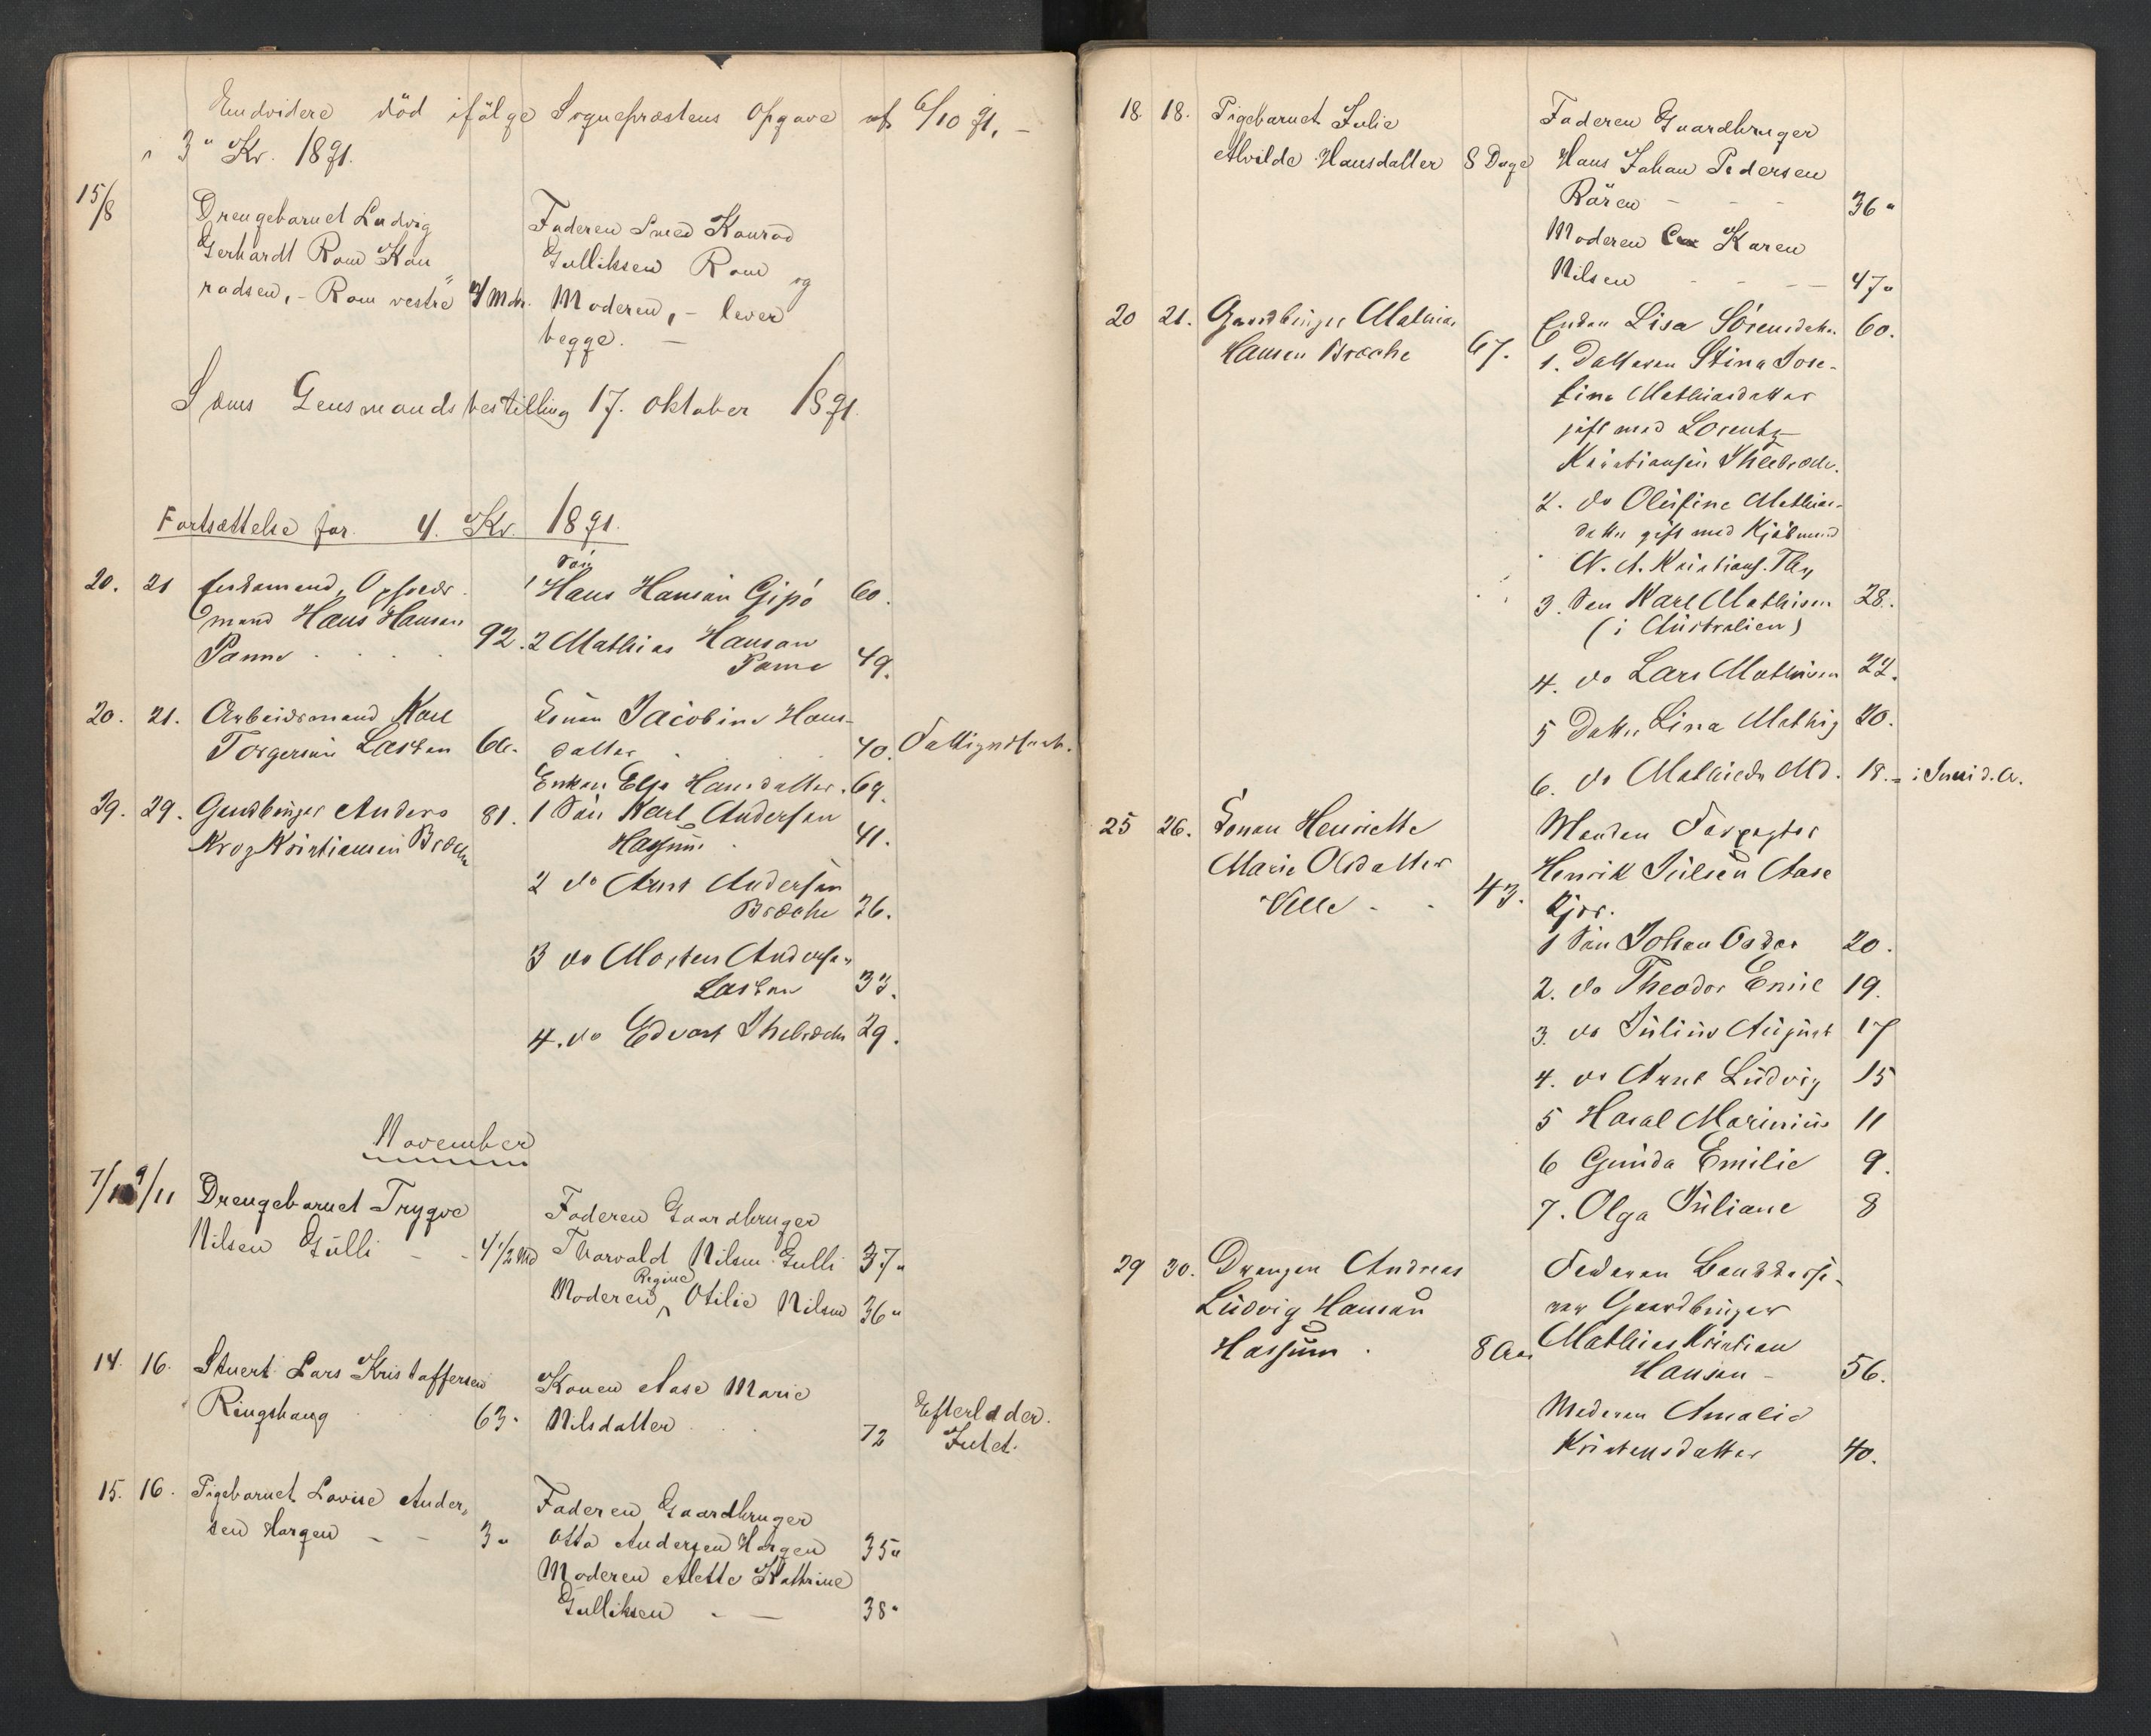 Endvidere död ifölge Sognepræstens Opgave af 6/10 91. –
3" Kv. 1891.
15/8 Drengebarnet Ludvig
Gerhardt Rom Kon
radsen, – Rom vestre 4 Mdr.
Faderen Smed Konrad
Gulliksen Rom og
Moderen, – lever
begge. –
Sæms Lensmandsbestilling 17. oktober 1891.
Fortsættelse for 4. Kv. 1891.
20. 21 Enkemand, Opfoeds
mand Hans Hansen
Pamne 92.
Sön
1 Hans Hansen Gipö 60.
2 Mathias Hansen
Pamne 49.
20. 21. Arbeidsmand Karl
Torgersen Lasken 66.
Konen Jacobine Hans-
datter 40.
29. 29. Gaardbruger Anders
Krog Kristiansen Bræche 81.
Enken Else Hansdatter. 69.
1 Sön Karl Andersen
Hassum 41.
2 do Arnt Andersen
Bræche 36.
3 do Morten Andersen
Lasken 33.
4. do Edvart 29.
November
7/11 9/11 Drengebarnet Trygve
Nilsen Gulli – - 4 1/2 Md
Faderen Gaardbruger
Thorvald Nilsen Gulli 37"
Moderen, Regine Otilie Nilsen 36"
14. 16. Stuert Lars Kristoffersen
Ringshaug 63.
Konen Aase Marie
Nilsdatter 72
Efterlader
Intet.
15. 16. Pigebarnet Lovise Ander,
sen Horgen – – 3"
Faderen Gaardbruger
Otto Andersen Horgen 35"
Moderen Alette Kathrine
Gulliksen - – 38"
18. 18. Pigebarnet Julie
Alvilde Hansdatter 8 Dage
Faderen Gaardbruger
Hans Johan Pedersen
Rören - - - 36"
Moderen Karen
Nilsen - - - 47"
20 21. Gaardbruger Mathias
Hansen Bræche 67.
Enken Lisa Sörensdatter 60.
1. Datteren Stina Jose-
fine Mathiasdatter
gift med Lorentz
Kristiansen
2. do Olufine Mathias-
datter gift med Kjöbmand
N. A. Kristians.
3. Sön Karl Mathisen 28.
(i Australien)
4. do Lars Mathisen 22.
5 Datter Lina Mathis 20.
6. do Mathilde Md. 18. i Juni d. A.
25 26. Konen Henriette
Marie Olsdatter
Velle - - 43.
Manden Forpagter
Henrik Julsen Aase
kjær.
1 Sön Johan Oskar 20.
2. do Theodor Emil 19.
3. do Julius August 17
4. do Arnt Ludvig 15
5 Haral Marinius 11
6 Gunda Emilie 9.
7. Olga Juliane 8
29 30. Drengen Andreas
Ludvig Hansen
Hassum . 8 Aar
Faderen
Gaardbruger
Mathias Kristian
Hansen – 56.
Moderen Amalie
Kristensdatter 40.